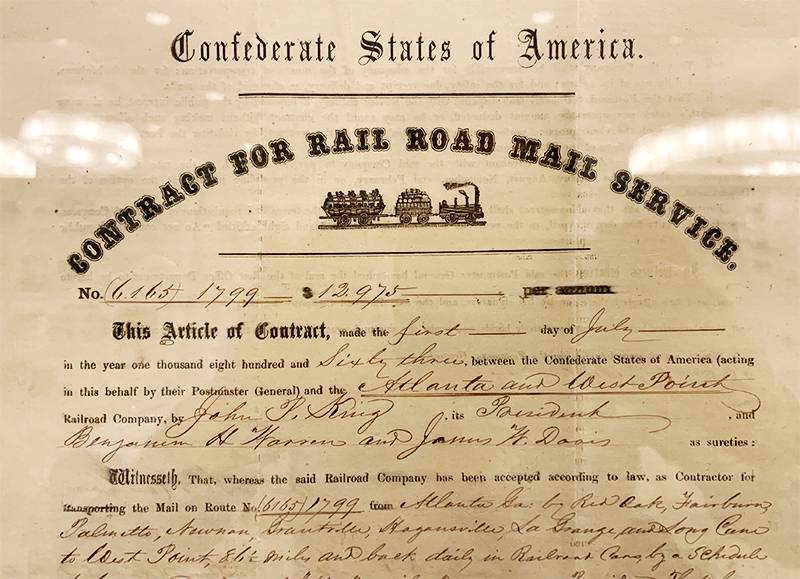 Confederate States of America.
CONTRACT FOR RAIL ROAD MAIL SERVICE.
No. (6165) 1799 — $ 12.975 per annum
This Article of Contract, made the first day of July
in the year one thousand eight hundred and Sixty three, between the Confederate States of America (acting
in this behalf by their Postmaster General) and the Atlanta and West Point
Railroad Company, by John P. King, its President, and
Benjamin H Warren and James W. Davis as sureties:
Witnesseth, That, whereas the said Railroad Company has been accepted according to law, as Contractor for
transporting the Mail on Route No. (6165) 1799 from Atlanta Ga: by Red Oak, Fairburn,
Palmetto, Newnan, Grantville, Hogansville, La Grange, and Long Cane
to West Point, 86½ miles and back daily in Railroad Cars, by a Schedule